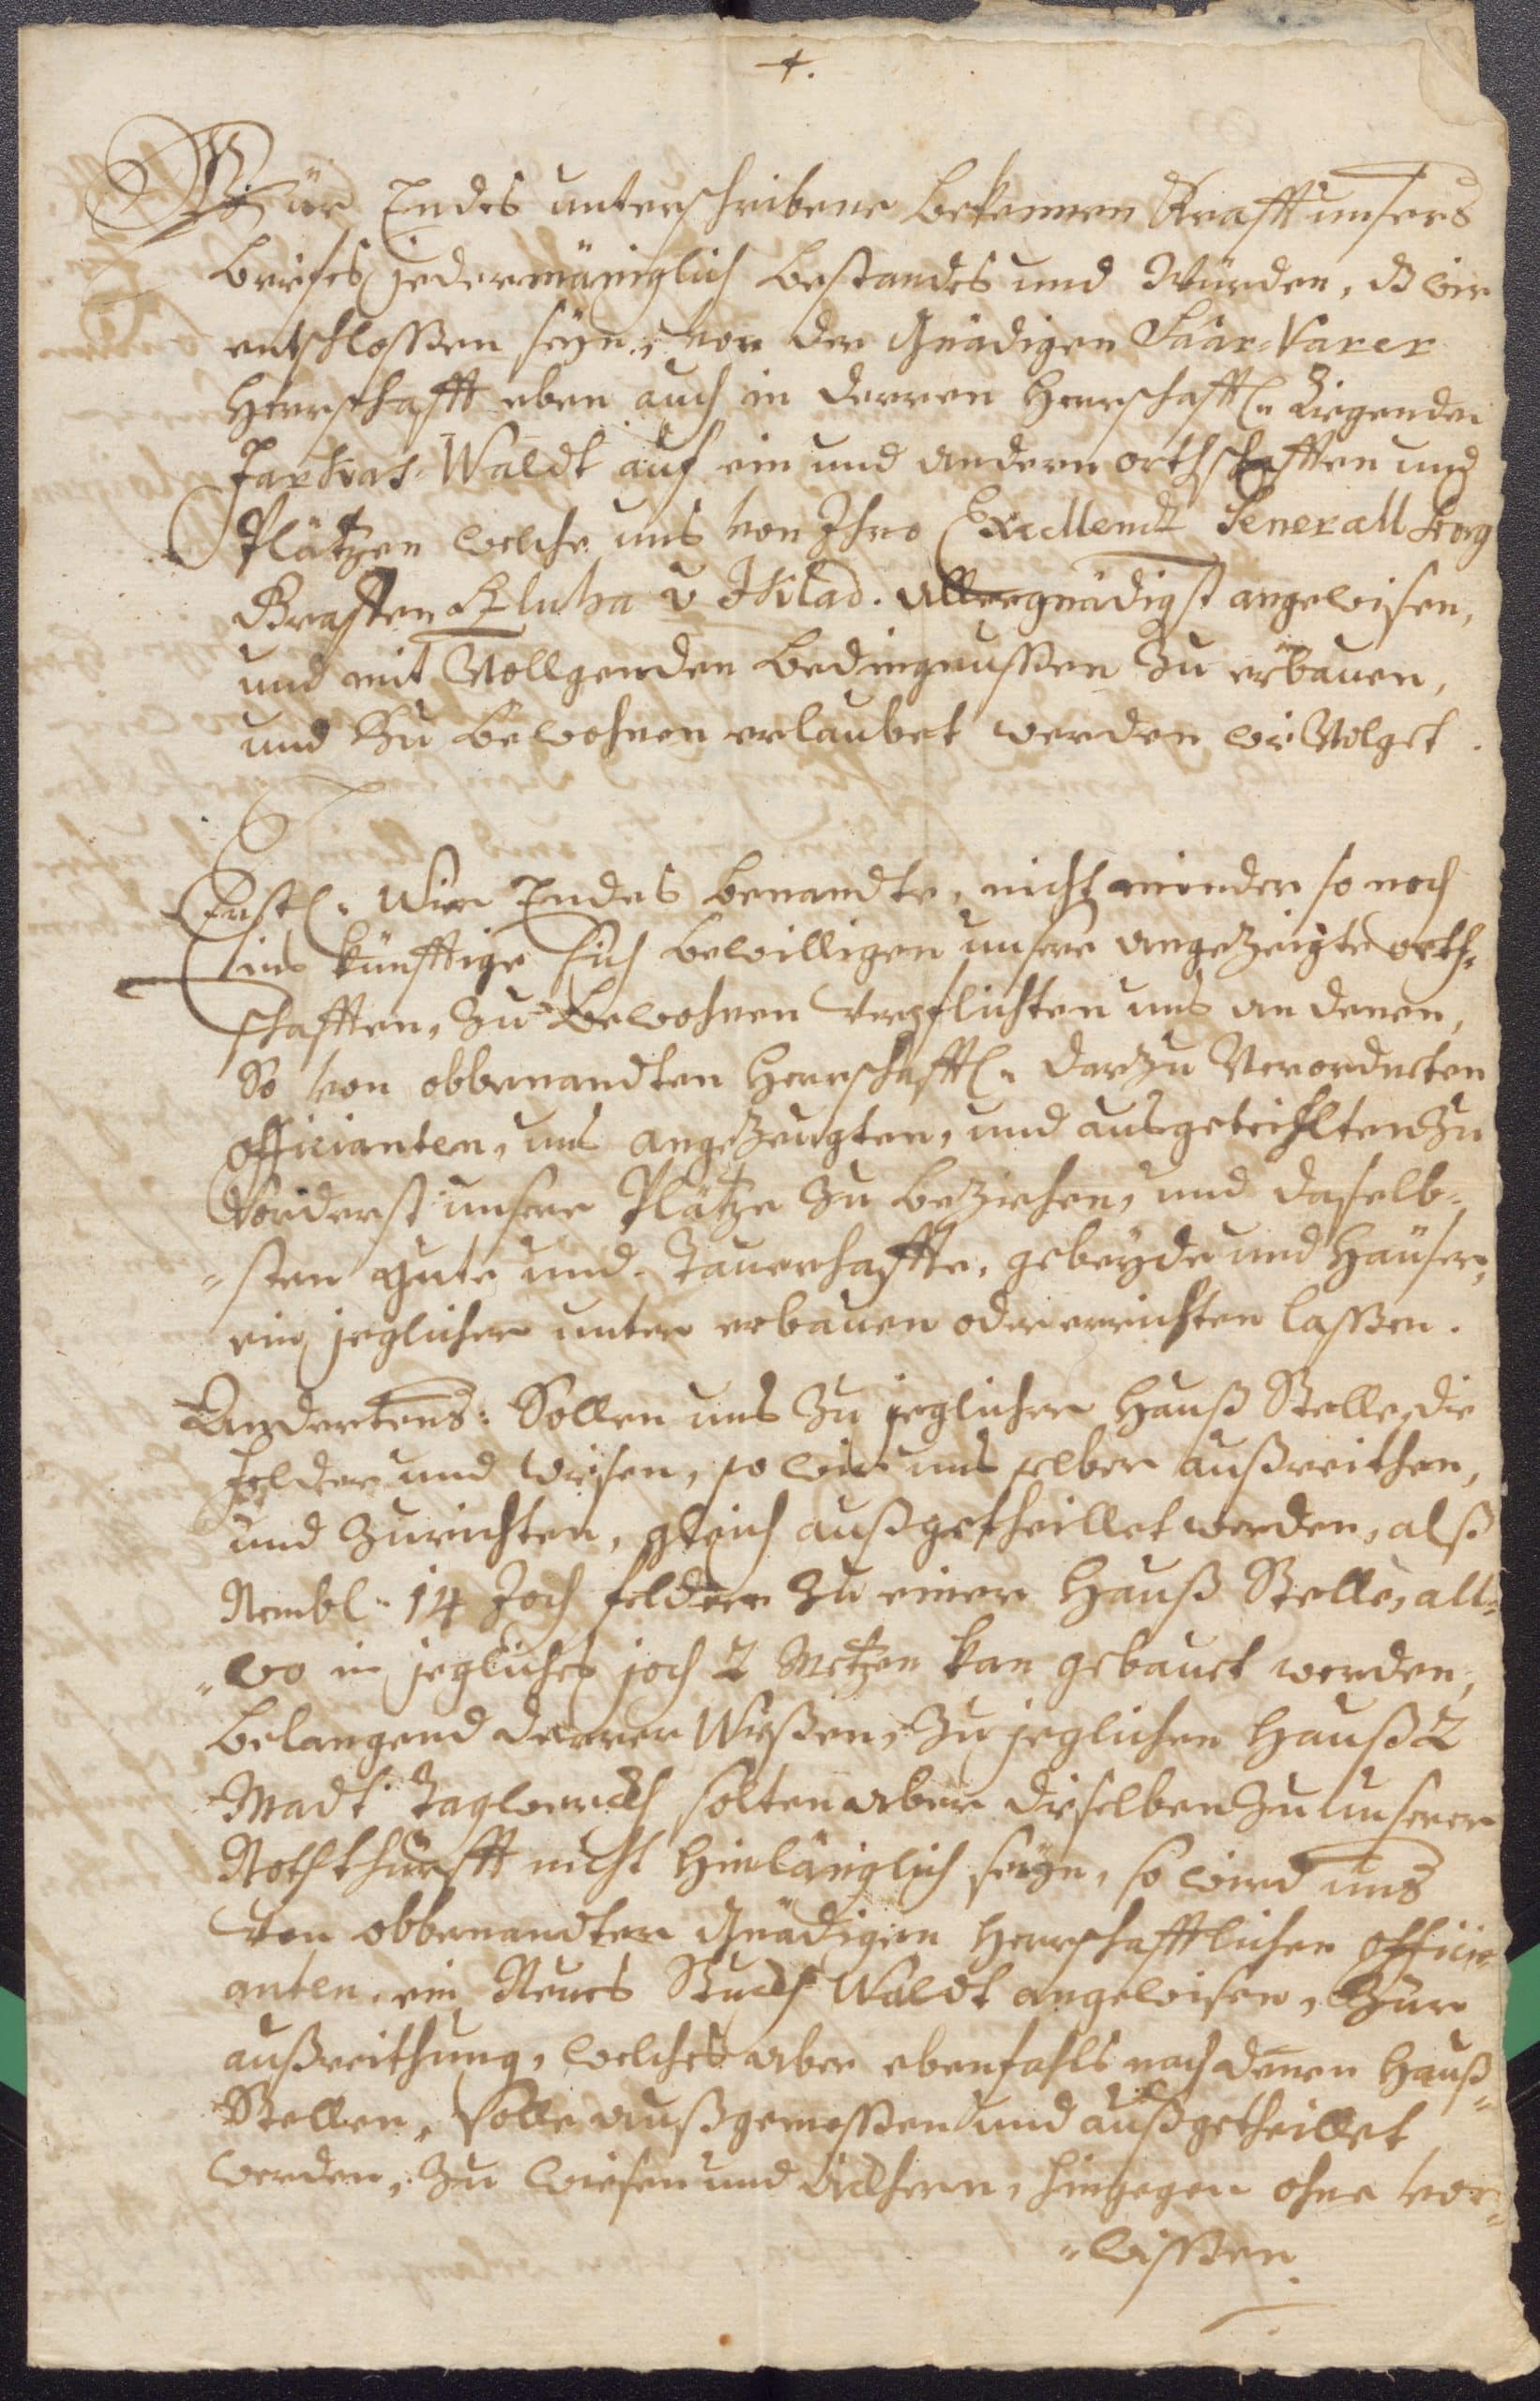 Wür Endes unterschribene bekennen Krafft unsers
brifes jedermäniglich bestandes und Würden, dz wir
entschlossen seyn, von der Gnädigen Saar-Varer
Herrschafft eben auch in derren Herrschafftl. Ligenden
Farkas-Waldt auf ein und andern orthschafften und
Plätzen welche uns von Ihro Excellentz Generall Georg
Graffen v Jklad. allergnädigst angewisen,
und mit Vollgenden bedingnussen zu erbauen,
und zu bewohnen erlaubet werden wi Volget.
Erstl. Wir Endes benandte, nicht minder so noch
ins künfftige sich bewilligen unsere angezeigte orth-
schafften, zu bewohnen verpflichten uns an denen,
So von obbenandten Herrschafftl. darzu Verordneten
officianten, uns angezeugten, und ausgeteihlten zu
vorderst unsere Plätze zu beziehen, und daselb-
-sten gute und Tauerhaffte, gebeyde und Häuser,
ein jeglicher unter erbauen oder errichten lassen.
Andertens: Sollen uns zu jeglicher Hauß Stelle, die
felder und wisen, so wir uns selber außreithen,
und zurichten, gleich außgetheillet werden, alß
Nembl. 14 Joch felder zu einer Hauß Stelle, all-
-wo in jegliches joch 2 Metzen kan gebauet werden,
belangend derer Wißen, zu jeglichen Hauß 2
Madt Tagwerckh solten aber dieselben zu unserer
Noththurfft nicht hinlänglich seyn, so wird uns
von obbenandter Gnädigen Herrschafftlichen offici-
anten, ein Neues Stuckh Waldt angewisen, zur
außreithung, welches aber ebenfahls nach denen Hauß-
Stellen, solle außgemessen und außgetheillet
werden, zu wiesen und äckhern, hingegen ohne vor-
-wissen